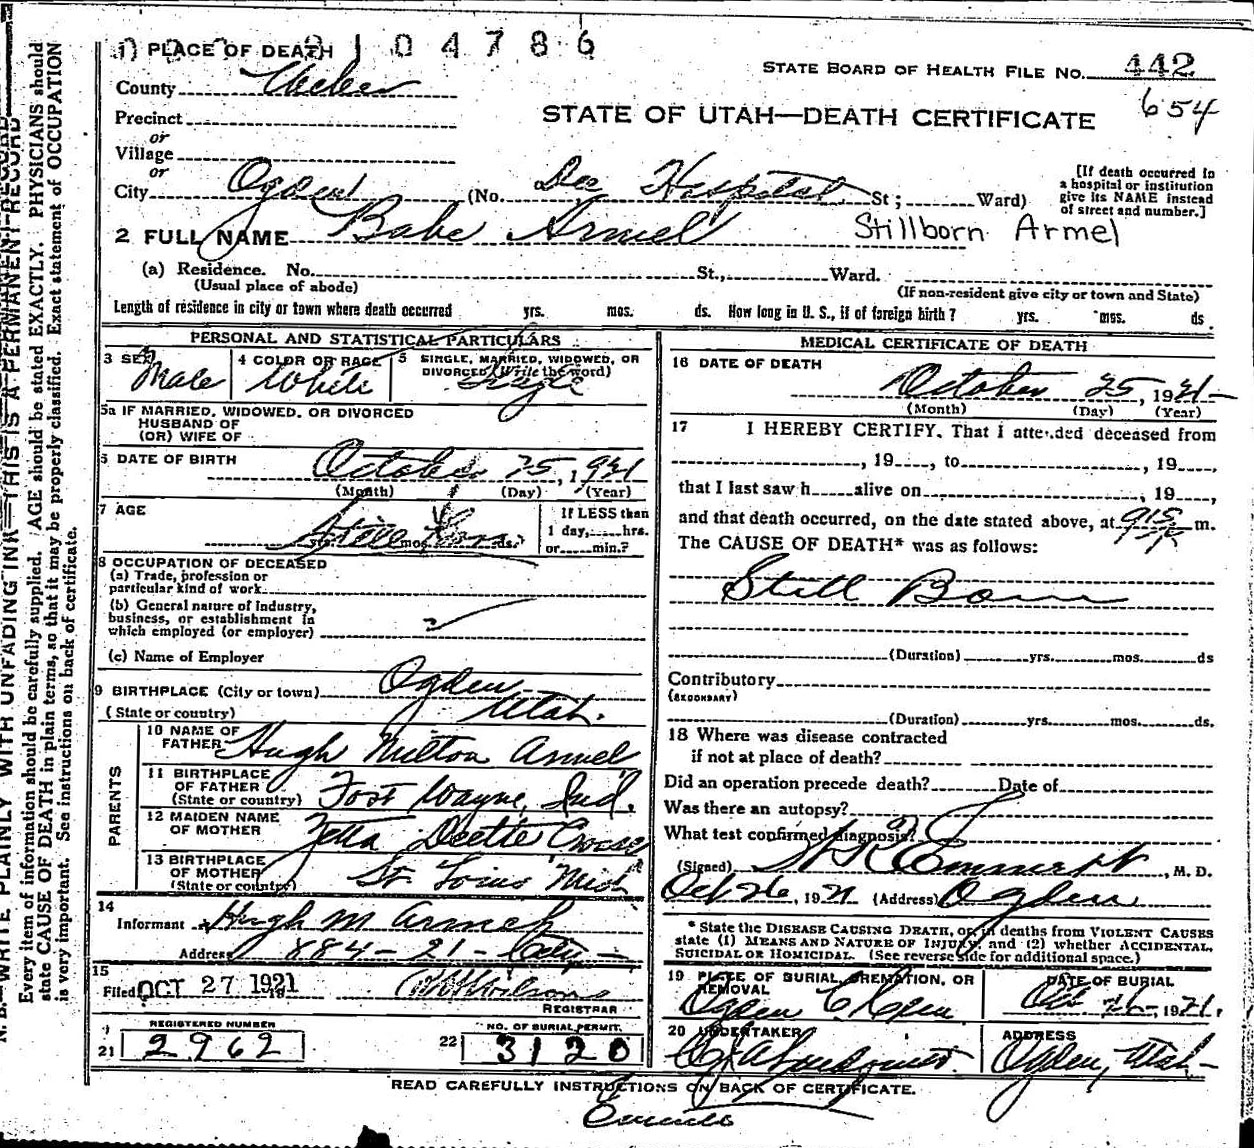 2104786
1 PLACE OF DEATH
STATE BOARD OF HEALTH FILE NO. 442
County Weber
654
STATE OF UTAH—DEATH CERTIFICATE
Precinct
or
Village
or
City Ogden (No. Dee Hospital St; Ward)
[If death occurred in
a hospital or institution
give its NAME instead
of street and number.]
2 FULL NAME Babe Armel Stillborn Armel
(a) Residence. No. St., Ward.
(Usual place of abode) (If non-resident give city or town and State)
Length of residence in city or town where death occurred yrs. mos. ds. How long in U. S., if of foreign birth? yrs. mos. ds.
PERSONAL AND STATISTICAL PARTICULARS
3 SEX Male
4 COLOR OR RACE White
5 SINGLE, MARRIED, WIDOWED, OR
DIVORCED (Write the word) Single
5a IF MARRIED, WIDOWED, OR DIVORCED
HUSBAND OF
(OR) WIFE OF
6 DATE OF BIRTH October 25, 1921
(Month) (Day) (Year)
7 AGE Still Born
yrs. mos. ds.
If LESS than
1 day, hrs.
or min.?
8 OCCUPATION OF DECEASED
(a) Trade, profession or
particular kind of work
(b) General nature of Industry,
business, or establishment in
which employed (or employer)
(c) Name of Employer
9 BIRTHPLACE (City or town) Ogden
(State or country) Utah.
PARENTS
10 NAME OF
FATHER Hugh Milton Armel
11 BIRTHPLACE
OF FATHER
(State or country) Fort Wayne, Ind.
12 MAIDEN NAME
OF MOTHER Zetta Deette
13 BIRTHPLACE
OF MOTHER
(State or country) St. Louis Mich
14
Informant Hugh M Armel
Address 884-21- City-
15
Filed OCT 27 1921
REGISTRAR
REGISTERED NUMBER
21 2962
NO. OF BURIAL PERMIT.
22 3120
MEDICAL CERTIFICATE OF DEATH
16 DATE OF DEATH
October 25, 1921-
(Month) (Day) (Year)
17 I HEREBY CERTIFY, That I attended deceased from
, 19 , to , 19 ,
that I last saw h alive on , 19 ,
and that death occurred, on the date stated above, at 915 P m.
The CAUSE OF DEATH* was as follows:
Still Born
(Duration) yrs. mos. ds
Contributory
(SECONDARY)
(Duration) yrs. mos. ds.
18 Where was disease contracted
if not at place of death?
Did an operation precede death? Date of
Was there an autopsy?
What test confirmed diagnosis?
(Signed) Emmett, M. D.
Oct 26, 1921 (Address) Ogden
* State the DISEASE CAUSING DEATH, or in deaths from VIOLENT CAUSES
state (1) MEANS AND NATURE OF INJURY, and (2) whether ACCIDENTAL,
SUICIDAL OR HOMICIDAL. (See reverse side for additional space.)
19 PLACE OF BURIAL, CREMATION, OR
REMOVAL
Ogden
DATE OF BURIAL
Oct 26-, 1921.
20 UNDERTAKER
ADDRESS
Ogden, Utah-
READ CAREFULLY INSTRUCTIONS ON BACK OF CERTIFICATE.
N. B.—WRITE PLAINLY WITH UNFADING INK—THIS IS A PERMANENT RECORD
Every item of information should be carefully supplied. AGE should be stated EXACTLY. PHYSICIANS should
state CAUSE OF DEATH in plain terms, so that it may be properly classified. Exact statement of OCCUPATION
is very important. See instructions on back of certificate.